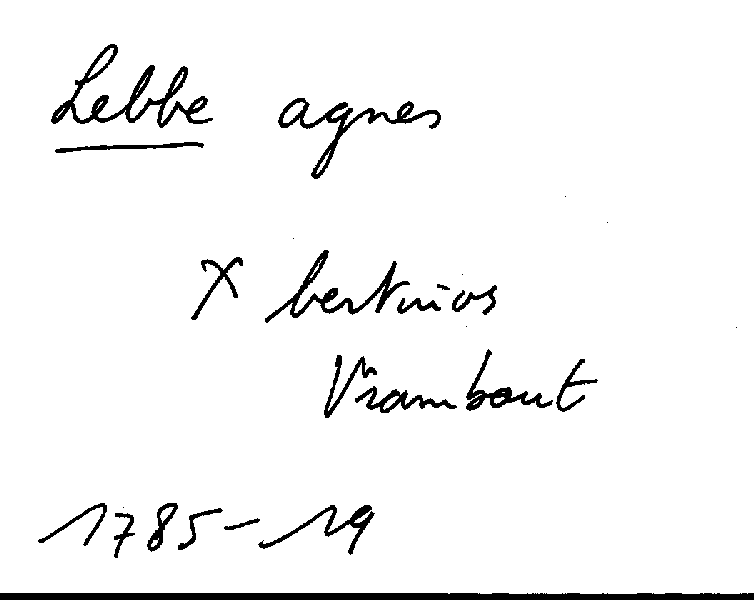 Lebbe agnes
X bertinos
Vrambout
1785-19